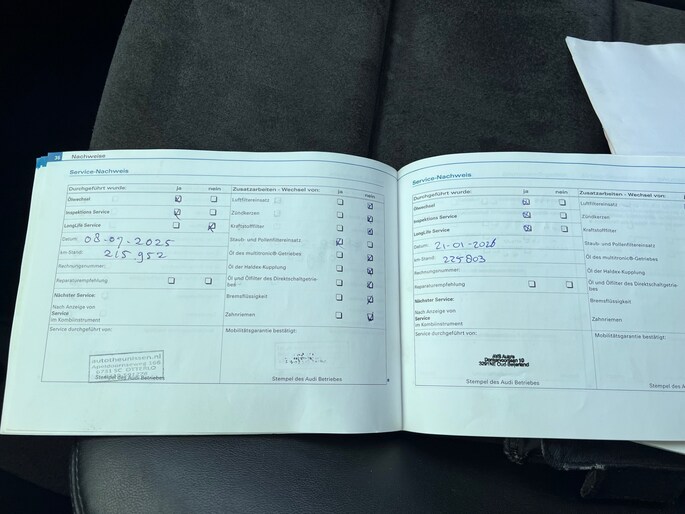 36 Nachweise
Service-Nachweis
Durchgeführt wurde: ja nein
Ölwechsel
Inspektions Service
LongLife Service
Datum: 08-07-2025
km-Stand: 215.952
Rechnungsnummer:
Reparaturempfehlung:
Nächster Service:
Nach Anzeige von
Service
im Kombiinstrument
Service durchgeführt von:
autotheunissen.nl
Stempel des Audi Betriebes
Zusatzarbeiten - Wechsel von: ja nein
Luftfiltereinsatz
Zündkerzen
Kraftstofffilter
Staub- und Pollenfiltereinsatz
Öl des multitronic®-Getriebes
Öl der Haldex-Kupplung
Öl und Ölfilter des Direktschaltgetrie-
bes
Bremsflüssigkeit
Zahnriemen
Mobilitätsgarantie bestätigt:
Stempel des Audi Betriebes
Service-Nachweis
Durchgeführt wurde: ja nein
Ölwechsel
Inspektions Service
LongLife Service
Datum: 21-01-2026
km-Stand: 225803
Rechnungsnummer:
Reparaturempfehlung:
Nächster Service:
Nach Anzeige von
Service
im Kombiinstrument
Service durchgeführt von:
Oud-Beijerland
Stempel des Audi Betriebes
Zusatzarbeiten - Wechsel von:
Luftfiltereinsatz
Zündkerzen
Kraftstofffilter
Staub- und Pollenfiltereinsatz
Öl des multitronic®-Getriebes
Öl der Haldex-Kupplung
Öl und Ölfilter des Direktschaltgetrie-
bes
Bremsflüssigkeit
Zahnriemen
Mobilitätsgarantie bestätigt
Stempel des Au